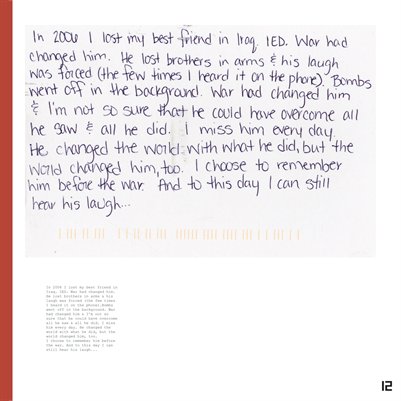 In 2006 I lost my best friend in Iraq. IED. War had
changed him. He lost brothers in arms & his laugh
was forced (the few times I heard it on the phone). Bombs
went off in the background. War had changed him
& I'm not so sure that he could have overcome all
he saw & all he did. I miss him every day.
He changed the world with what he did, but the
world changed him, too. I choose to remember
him before the war. And to this day I can still
hear his laugh...
In 2006 I lost my best friend in
Iraq, IED. War had changed him.
He lost brothers in arms & his
laugh was forced (the few times
I heard it on the phone). Bombs
went off in the background. War
had changed him & I'm not so
sure that he could have overcome
all he saw & all he did. I miss
him every day. He changed the
world with what he did, but the
world changed him, too.
I choose to remember him before
the war. And to this day I can
still hear his laugh...
12